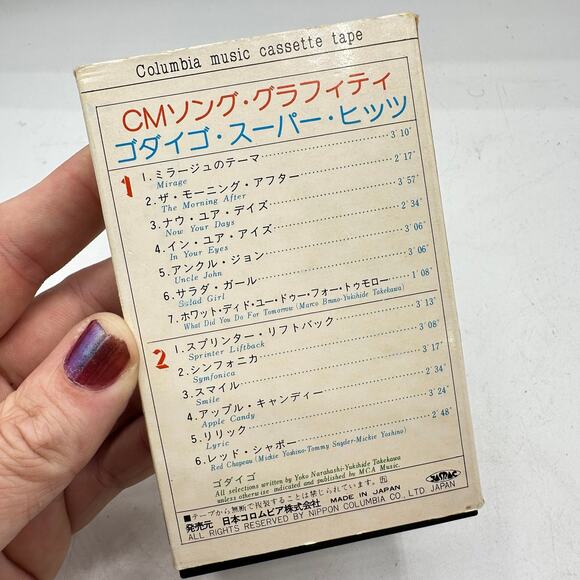 Columbia music cassette tape
CMソング・グラフィティ
ゴダイゴ・スーパー・ヒッツ
1
1. ミラージュのテーマ 3'10"
Mirage
2. ザ・モーニング・アフター 2'17"
The Morning After
3. ナウ・ユア・デイズ 3'57"
Now Your Days
4. イン・ユア・アイズ 2'34"
In Your Eyes
5. アンクル・ジョン 3'06"
Uncle John
6. サラダ・ガール 3'06"
Salad Girl
7. ホワット・ディド・ユー・ドゥー・フォー・トゥモロー 1'08"
What Did You Do For Tomorrow (Marco Bruno-Yukihide Takekawa)
2
1. スプリンター・リフトバック 3'13"
Sprinter Liftback
2. シンフォニカ 3'08"
Symfonica
3. スマイル 3'17"
Smile
4. アップル・キャンディー 2'34"
Apple Candy
5. リリック 3'24"
Lyric
6. レッド・シャポー 2'48"
Red Chapeau (Mickie Yoshino-Tommy Snyder-Mickie Yoshino)
ゴダイゴ
All selections written by Yoko Narahashi-Yukihide Takekawa
unless otherwise indicated and published by MCA Music.
■テープから無断で複製することは禁じられています。
発売元 日本コロムビア株式会社 MADE IN JAPAN
ALL RIGHTS RESERVED BY NIPPON COLUMBIA CO., LTD. JAPAN